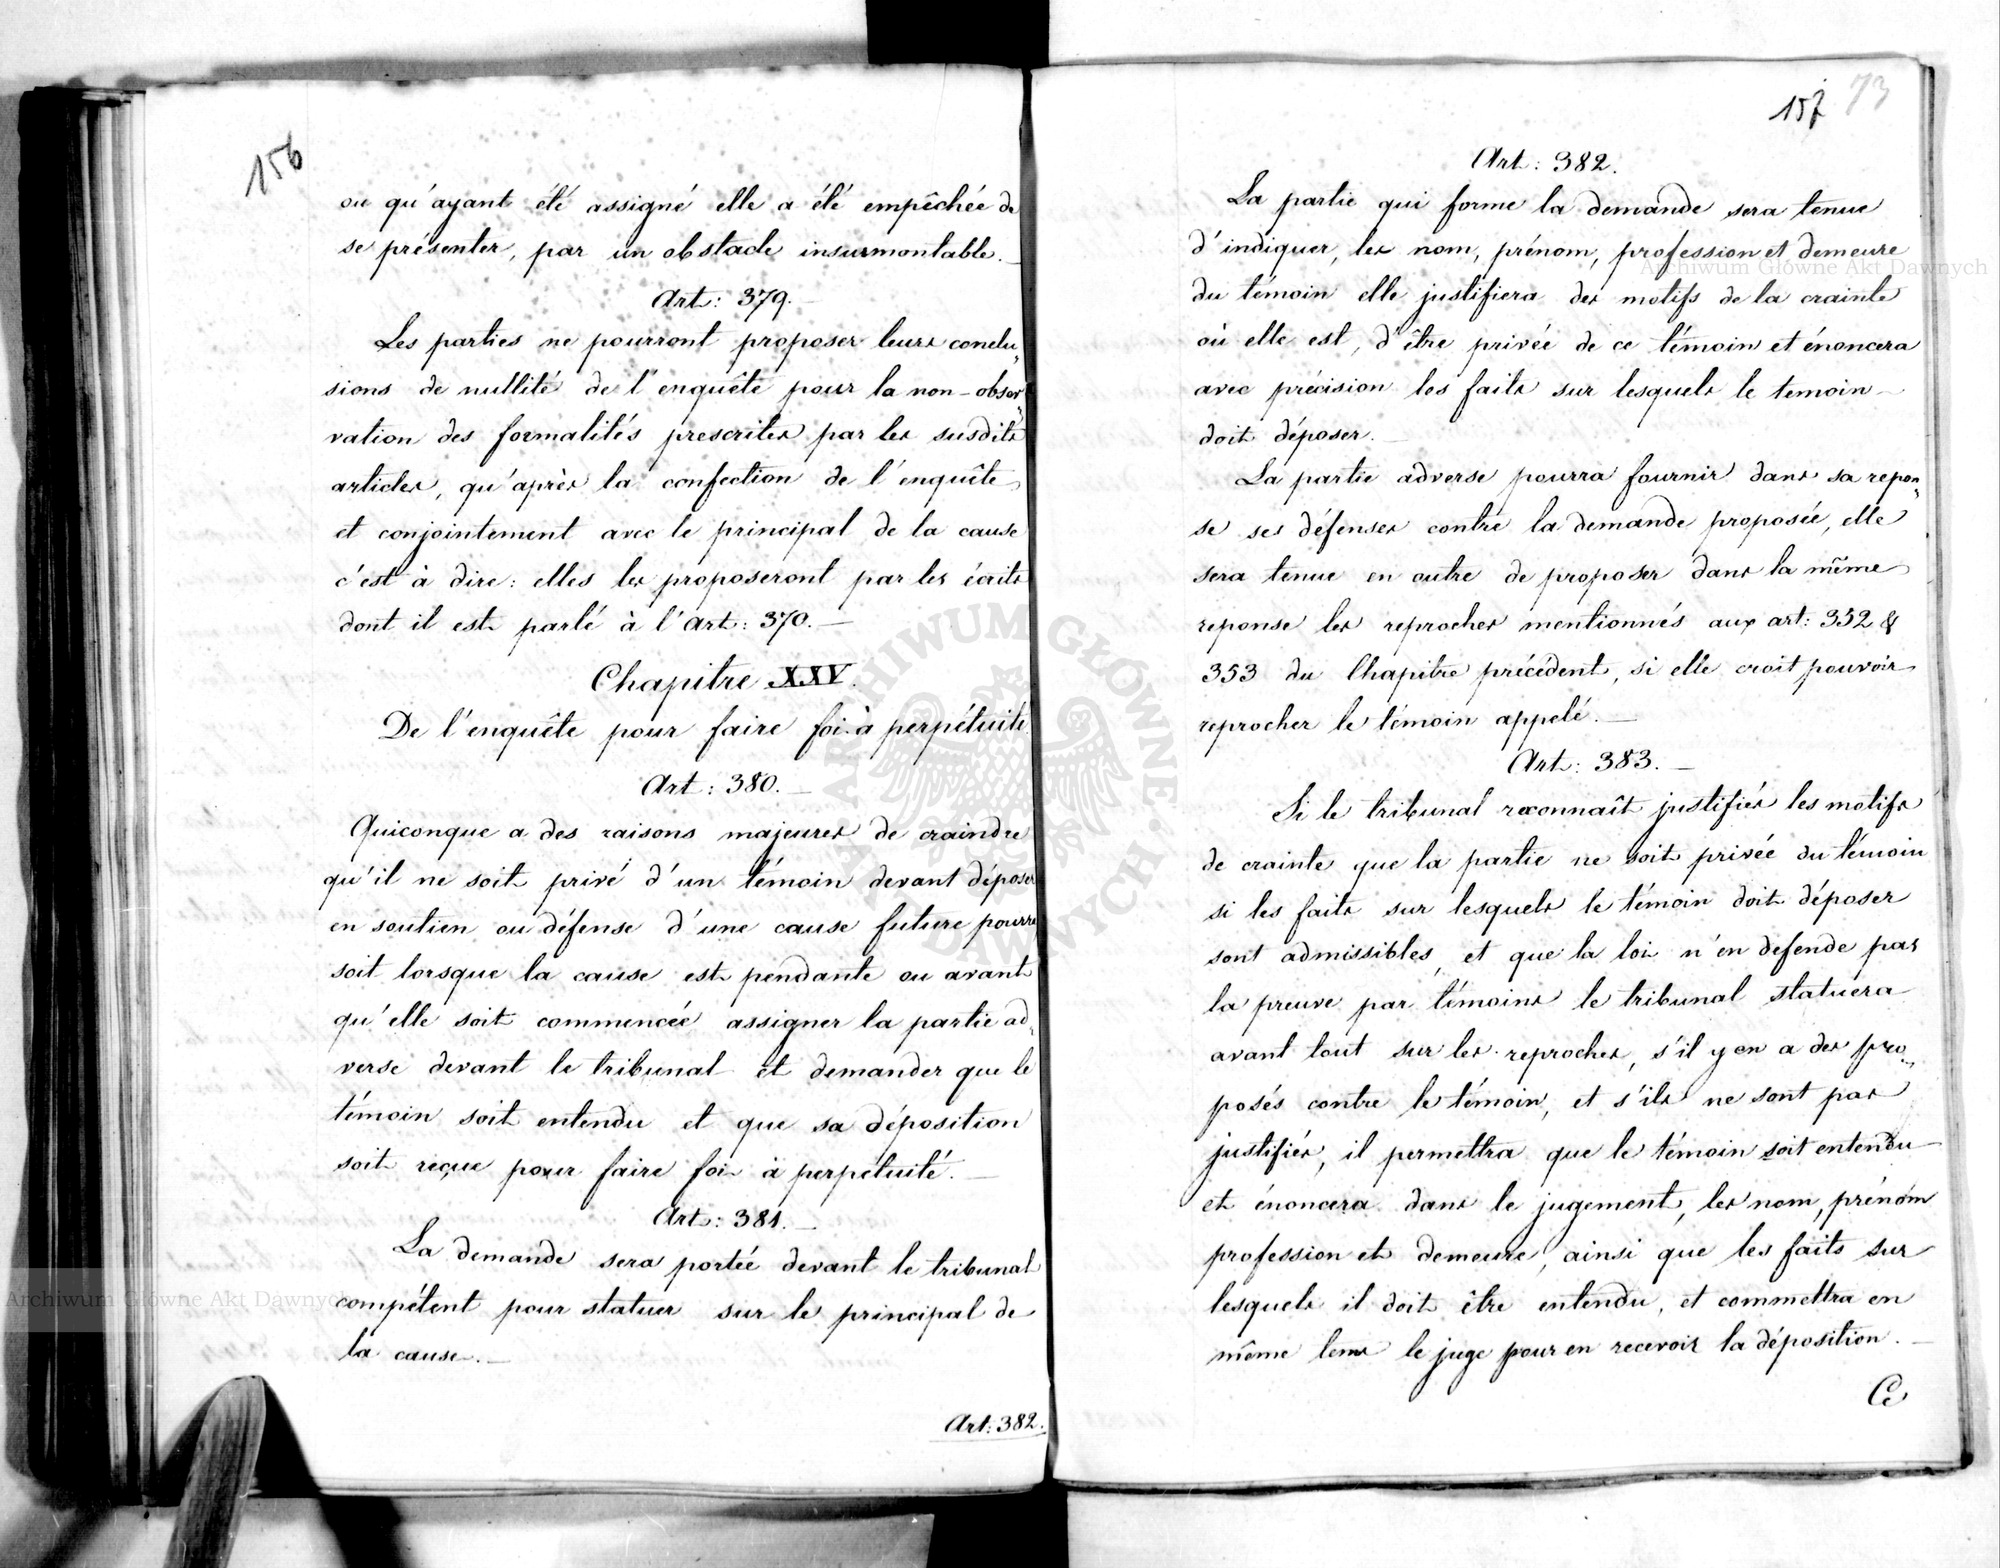 156
ou qu'ayant été assigné elle a été empêchée de
se présenter, par un obstacle insurmontable. —
Art: 379. —
Les parties ne pourront proposer leurs conclu„
sions de nullité de l'enquête pour la non-obser„
vation des formalités prescrites par les susdits
articles, qu'après la confection de l'enquête
et conjointement avec le principal de la cause
c'est à dire: elles les proposeront par les écrits
dont il est parlé à l'Art: 370. —
Chapitre XXV.
De l'enquête pour faire foi à perpétuité.
Art: 380. —
Quiconque a des raisons majeures de craindre
qu'il ne soit privé d'un témoin devant déposer
en soutien ou défense d'une cause future pourra
soit lorsque la cause est pendante ou avant
qu'elle soit commencée assigner la partie ad„
verse devant le tribunal et demander que le
témoin soit entendu et que sa déposition
soit reçue pour faire foi à perpétuité. —
Art: 381. —
La demande sera portée devant le tribunal
compétent pour statuer sur le principal de
la cause. —
Art: 382.
157 73
Art: 382.
La partie qui forme la demande sera tenue
d'indiquer, les nom, prénom, profession et demeure
du témoin elle justifiera des motifs de la crainte
où elle est, d'être privée de ce témoin et énoncera
avec précision les faits sur lesquels le temoin —
doit déposer. —
La partie adverse pourra fournir dans sa repon„
se ses défenses contre la demande proposée, elle
sera tenue en outre de proposer dans la même
reponse les reproches mentionnés aux art: 352 &
353 du Chapitre précédent, si elle croit pouvoir
reprocher le témoin appelé. —
Art: 383. —
Si le tribunal reconnaît justifiés les motifs
de crainte que la partie ne soit privée du témoin
si les faits sur lesquels le témoin doit déposer
sont admissibles, et que la loi n'en defende pas
la preuve par témoins le tribunal statuera
avant tout sur les reproches, s'il y en a des pro„
posés contre le témoin, et s'ils ne sont pas
justifiés, il permettra que le témoin soit entendu
et énoncera dans le jugement, les nom, prénom
profession et demeure, ainsi que les faits sur
lesquels il doit être entendu, et commettra en
même tems le juge pour en recevoir la déposition. —
Ce
Archiwum Główne Akt Dawnych
Archiwum Główne Akt Dawnych
ARCHIWUM GŁÓWNE AKT DAWNYCH